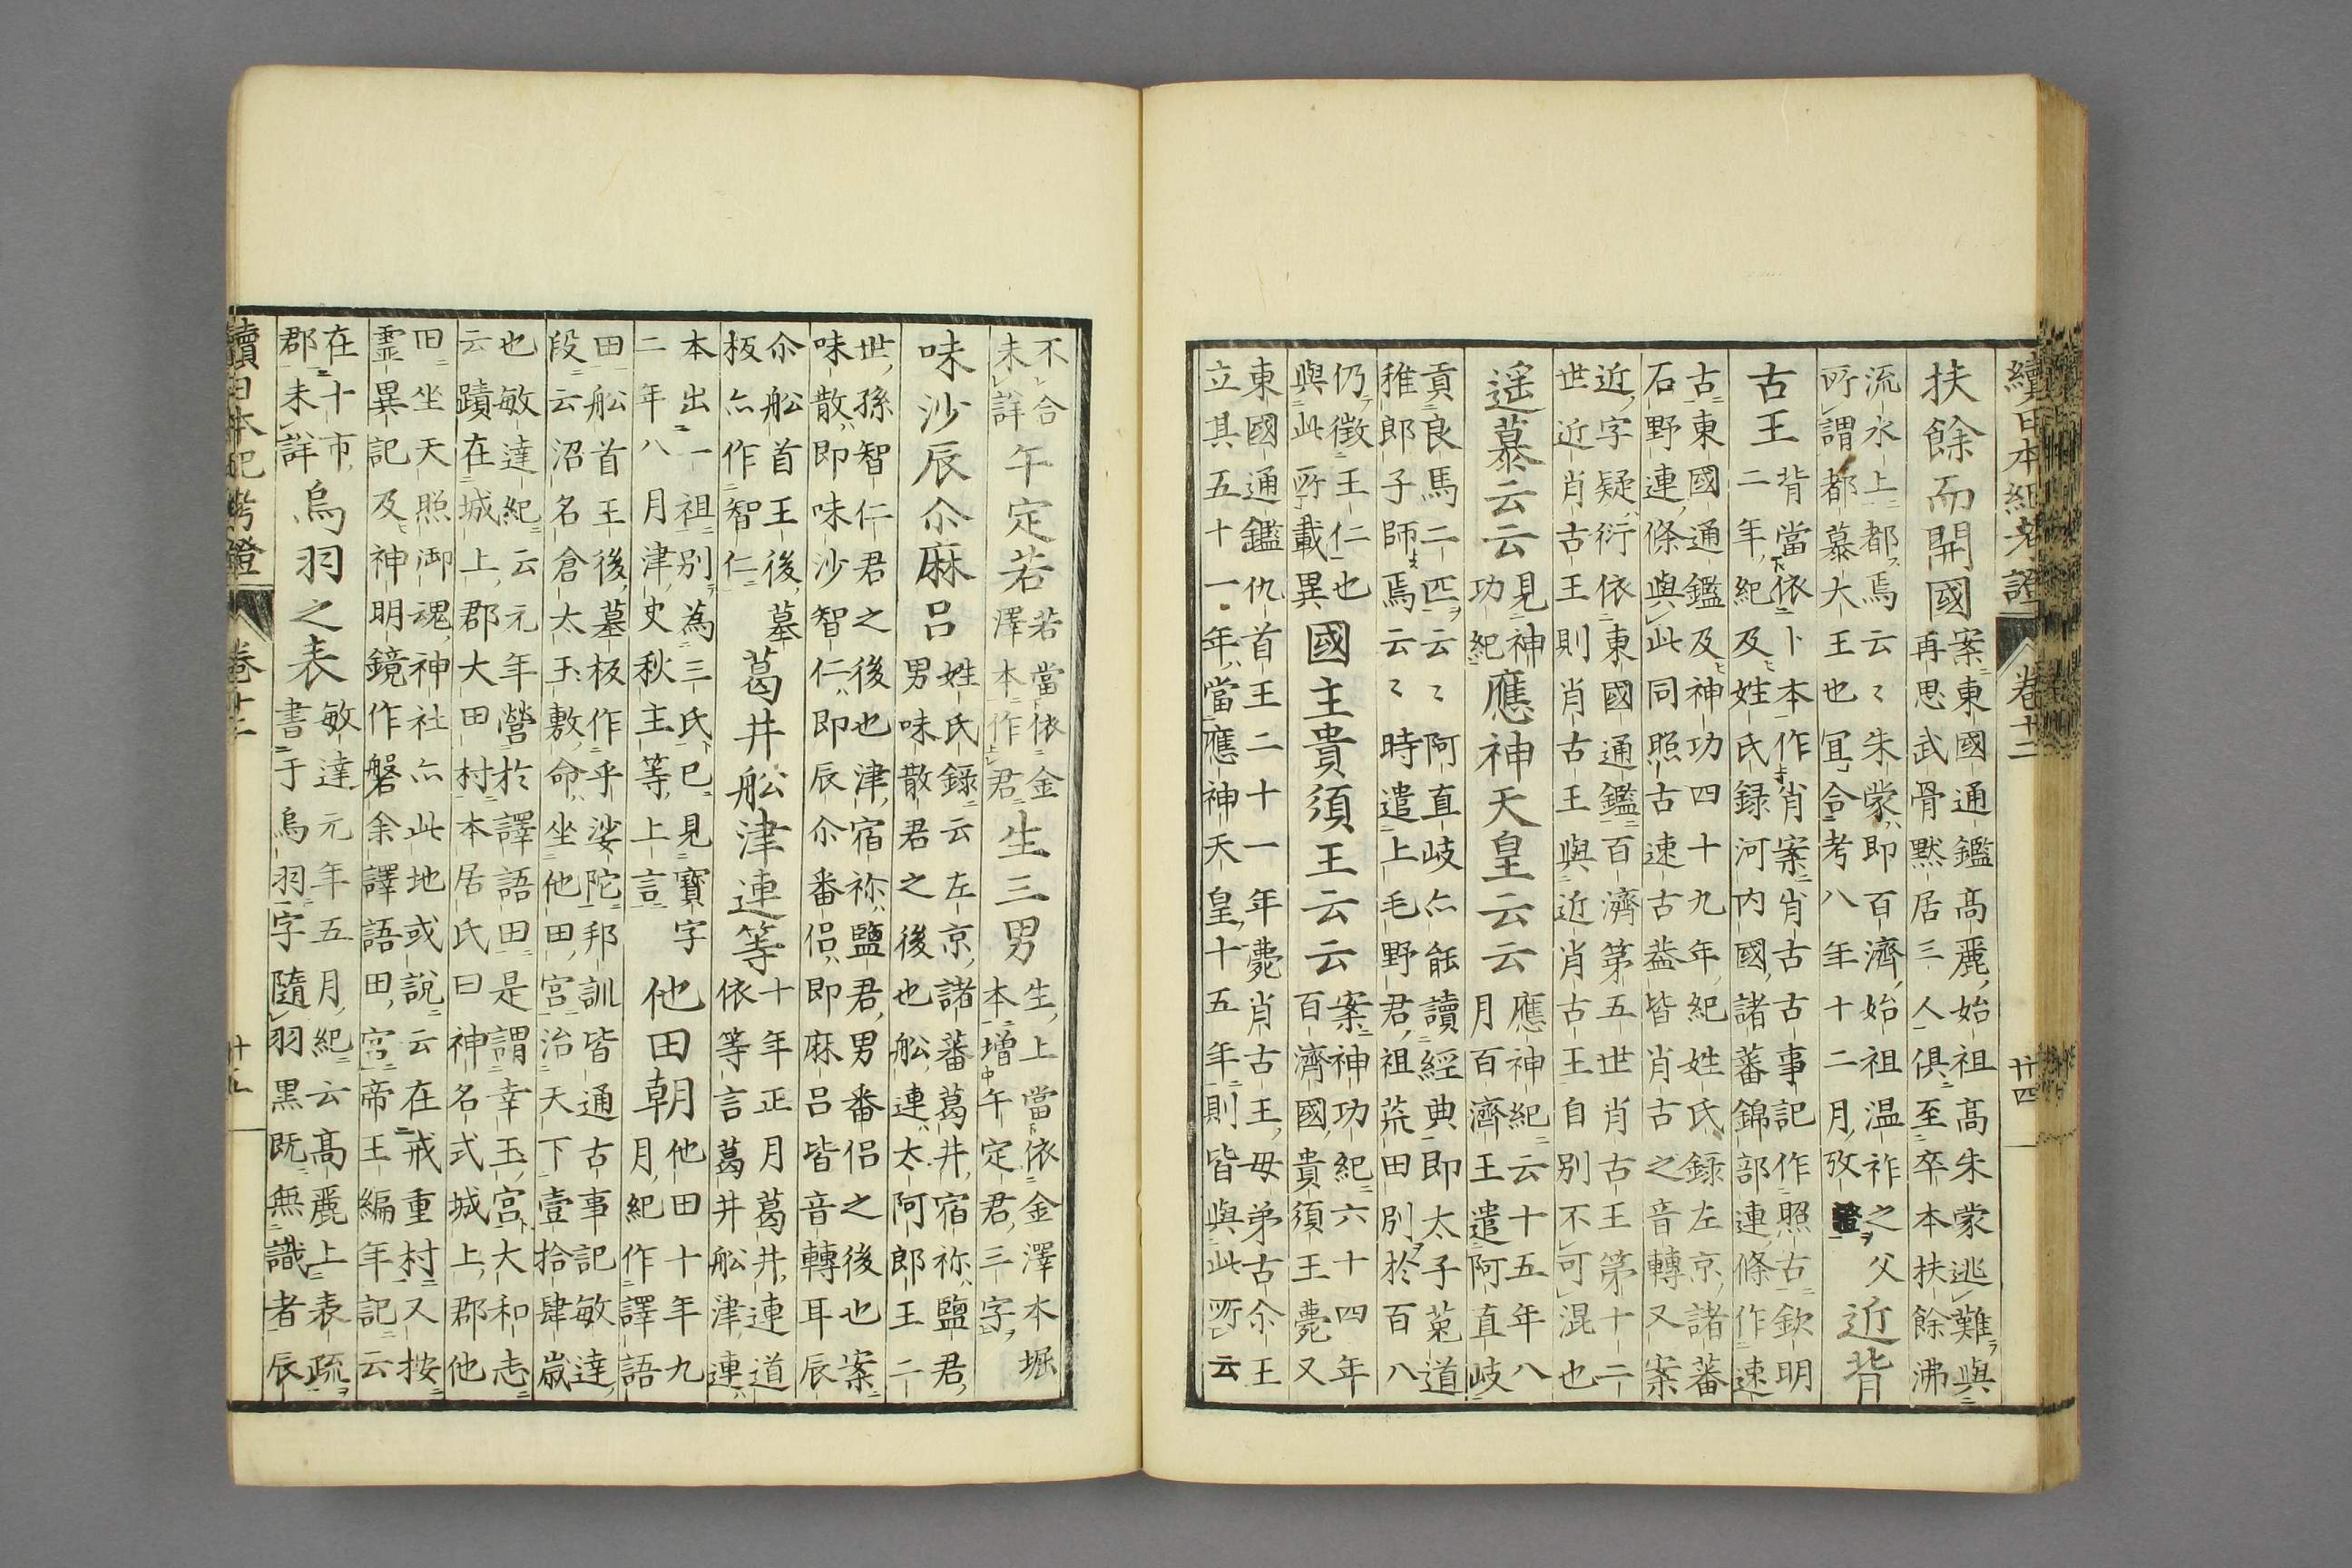 續日本紀考證 卷十二 廿四
扶餘而開國 案東國通鑑高麗始祖高朱蒙逃難與
再思武骨默居三人俱至卒本扶餘沸
流水上都焉云〻朱蒙即百濟始祖温祚之父
所謂都慕大王也宜合考八年十二月攷證
近背
古王 背當依卜本作肖案肖古古事記作照古欽明
二年紀及姓氏録河内國諸蕃錦部連條作速
古東國通鑑及神功四十九年紀姓氏録左京諸蕃
石野連條與此同照古速古葢皆肖古之音轉又案
近字疑衍依東國通鑑百濟第五世肖古王第十二
世近肖古王則肖古王與近肖古王自別不可混也
遥慕云云 見神
功紀
應神天皇云云 應神紀云十五年八
月百濟王遣阿直岐
貢良馬二匹云〻阿直岐亦能讀經典即太子菟道
稚郎子師焉云〻時遣上毛野君祖荒田別於百八
仍徴王仁也
與此所載異
國主貴須王云云 案神功紀六十四年
百濟國貴須王薨又
東國通鑑仇首王二十一年薨肖古王母弟古尒王
立其五十一年當應神天皇十五年則皆與此所云
不合
未詳
午定若 若當依金
澤本作君
生三男 生上當依金澤本堀
本增午定君三字
味沙辰尒麻呂 姓氏録云左京諸蕃葛井宿祢鹽君
男味散君之後也舩連太阿郎王二
世孫智仁君之後也津宿祢鹽君男番侶之後也案
味散即味沙智仁即辰尒番侶即麻呂皆音轉耳辰
尒舩首王後墓
板亦作智仁
葛井舩津連等 十年正月葛井連道
依等言葛井舩津連
本出一祖別為三氏已見寳字
二年八月津史秋主等上言
他田朝 他田十年九
月紀作譯語
田舩首王後墓板作乎娑陀邦訓皆通古事記敏達
段云沼名倉太玉敷命坐他田宮治天下壹拾肆歳
也敏達紀云元年營於譯語田是謂幸玉宮大和志
云蹟在城上郡大田村本居氏曰神名式城上郡他
田坐天照御魂神社亦此地或說云在戒重村又按
霊異記及神明鏡作磐余譯語田宮帝王編年記云
在十市
郡未詳
烏羽之表 敏達元年五月紀云高麗上表疏
書于烏羽字隨羽黒既無識者辰
續日本紀考證 卷十二 廿五